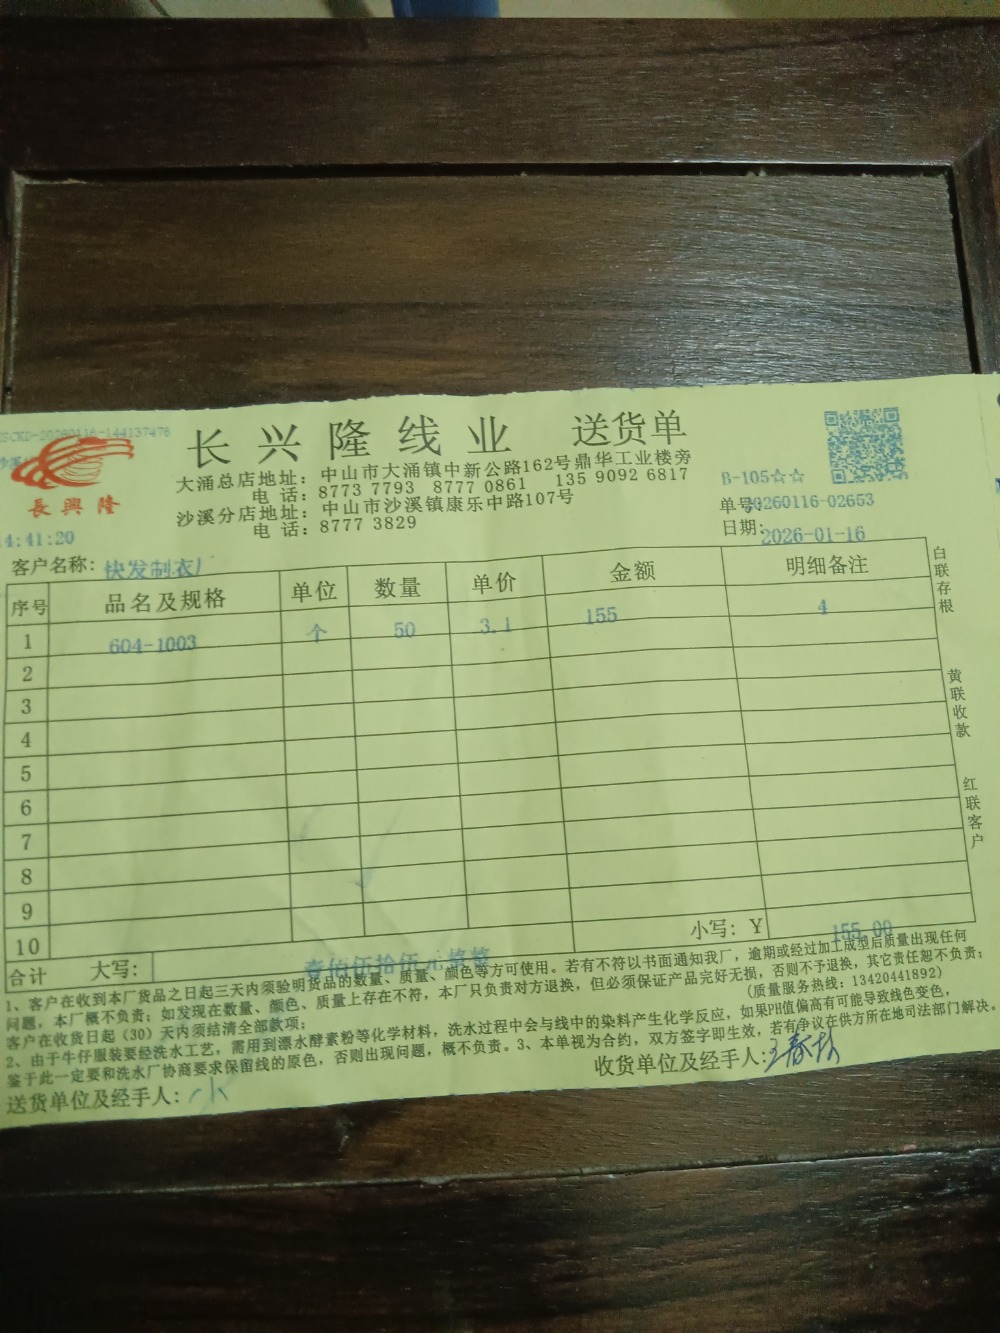 長興隆
长兴隆线业 送货单
大涌总店地址：中山市大涌镇中新公路162号鼎华工业楼旁
电话：8773 7793 8777 0861 135 9092 6817
沙溪分店地址：中山市沙溪镇康乐中路107号
电话：8777 3829
B-105☆☆
单号:20260116-02653
日期:2026-01-16
14:41:20
客户名称：快发制衣厂
序号 品名及规格 单位 数量 单价 金额 明细备注
1 604-1003 个 50 3.1 155 4
2
3
4
5
6
7
8
9
10
小写：￥ 155.00
合计 大写：壹佰伍拾伍元整
白联存根
黄联收款
红联客户
1、客户在收到本厂货品之日起三天内须验明货品的数量、质量、颜色等方可使用。若有不符以书面通知我厂，逾期或经过加工成型后质量出现任何
问题，本厂概不负责；如发现在数量、颜色、质量上存在不符，本厂只负责对方退换，但必须保证产品完好无损，否则不予退换，其它责任恕不负责；
客户在收货日起（30）天内须结清全部款项；
（质量服务热线：13420441892）
2、由于牛仔服装要经洗水工艺，需用到漂水酵素粉等化学材料，洗水过程中会与线中的染料产生化学反应，如果PH值偏高有可能导致线色变色，
鉴于此一定要和洗水厂协商要求保留线的原色，否则出现问题，概不负责。3、本单视为合约，双方签字即生效，若有争议在供方所在地司法部门解决。
送货单位及经手人：
收货单位及经手人：